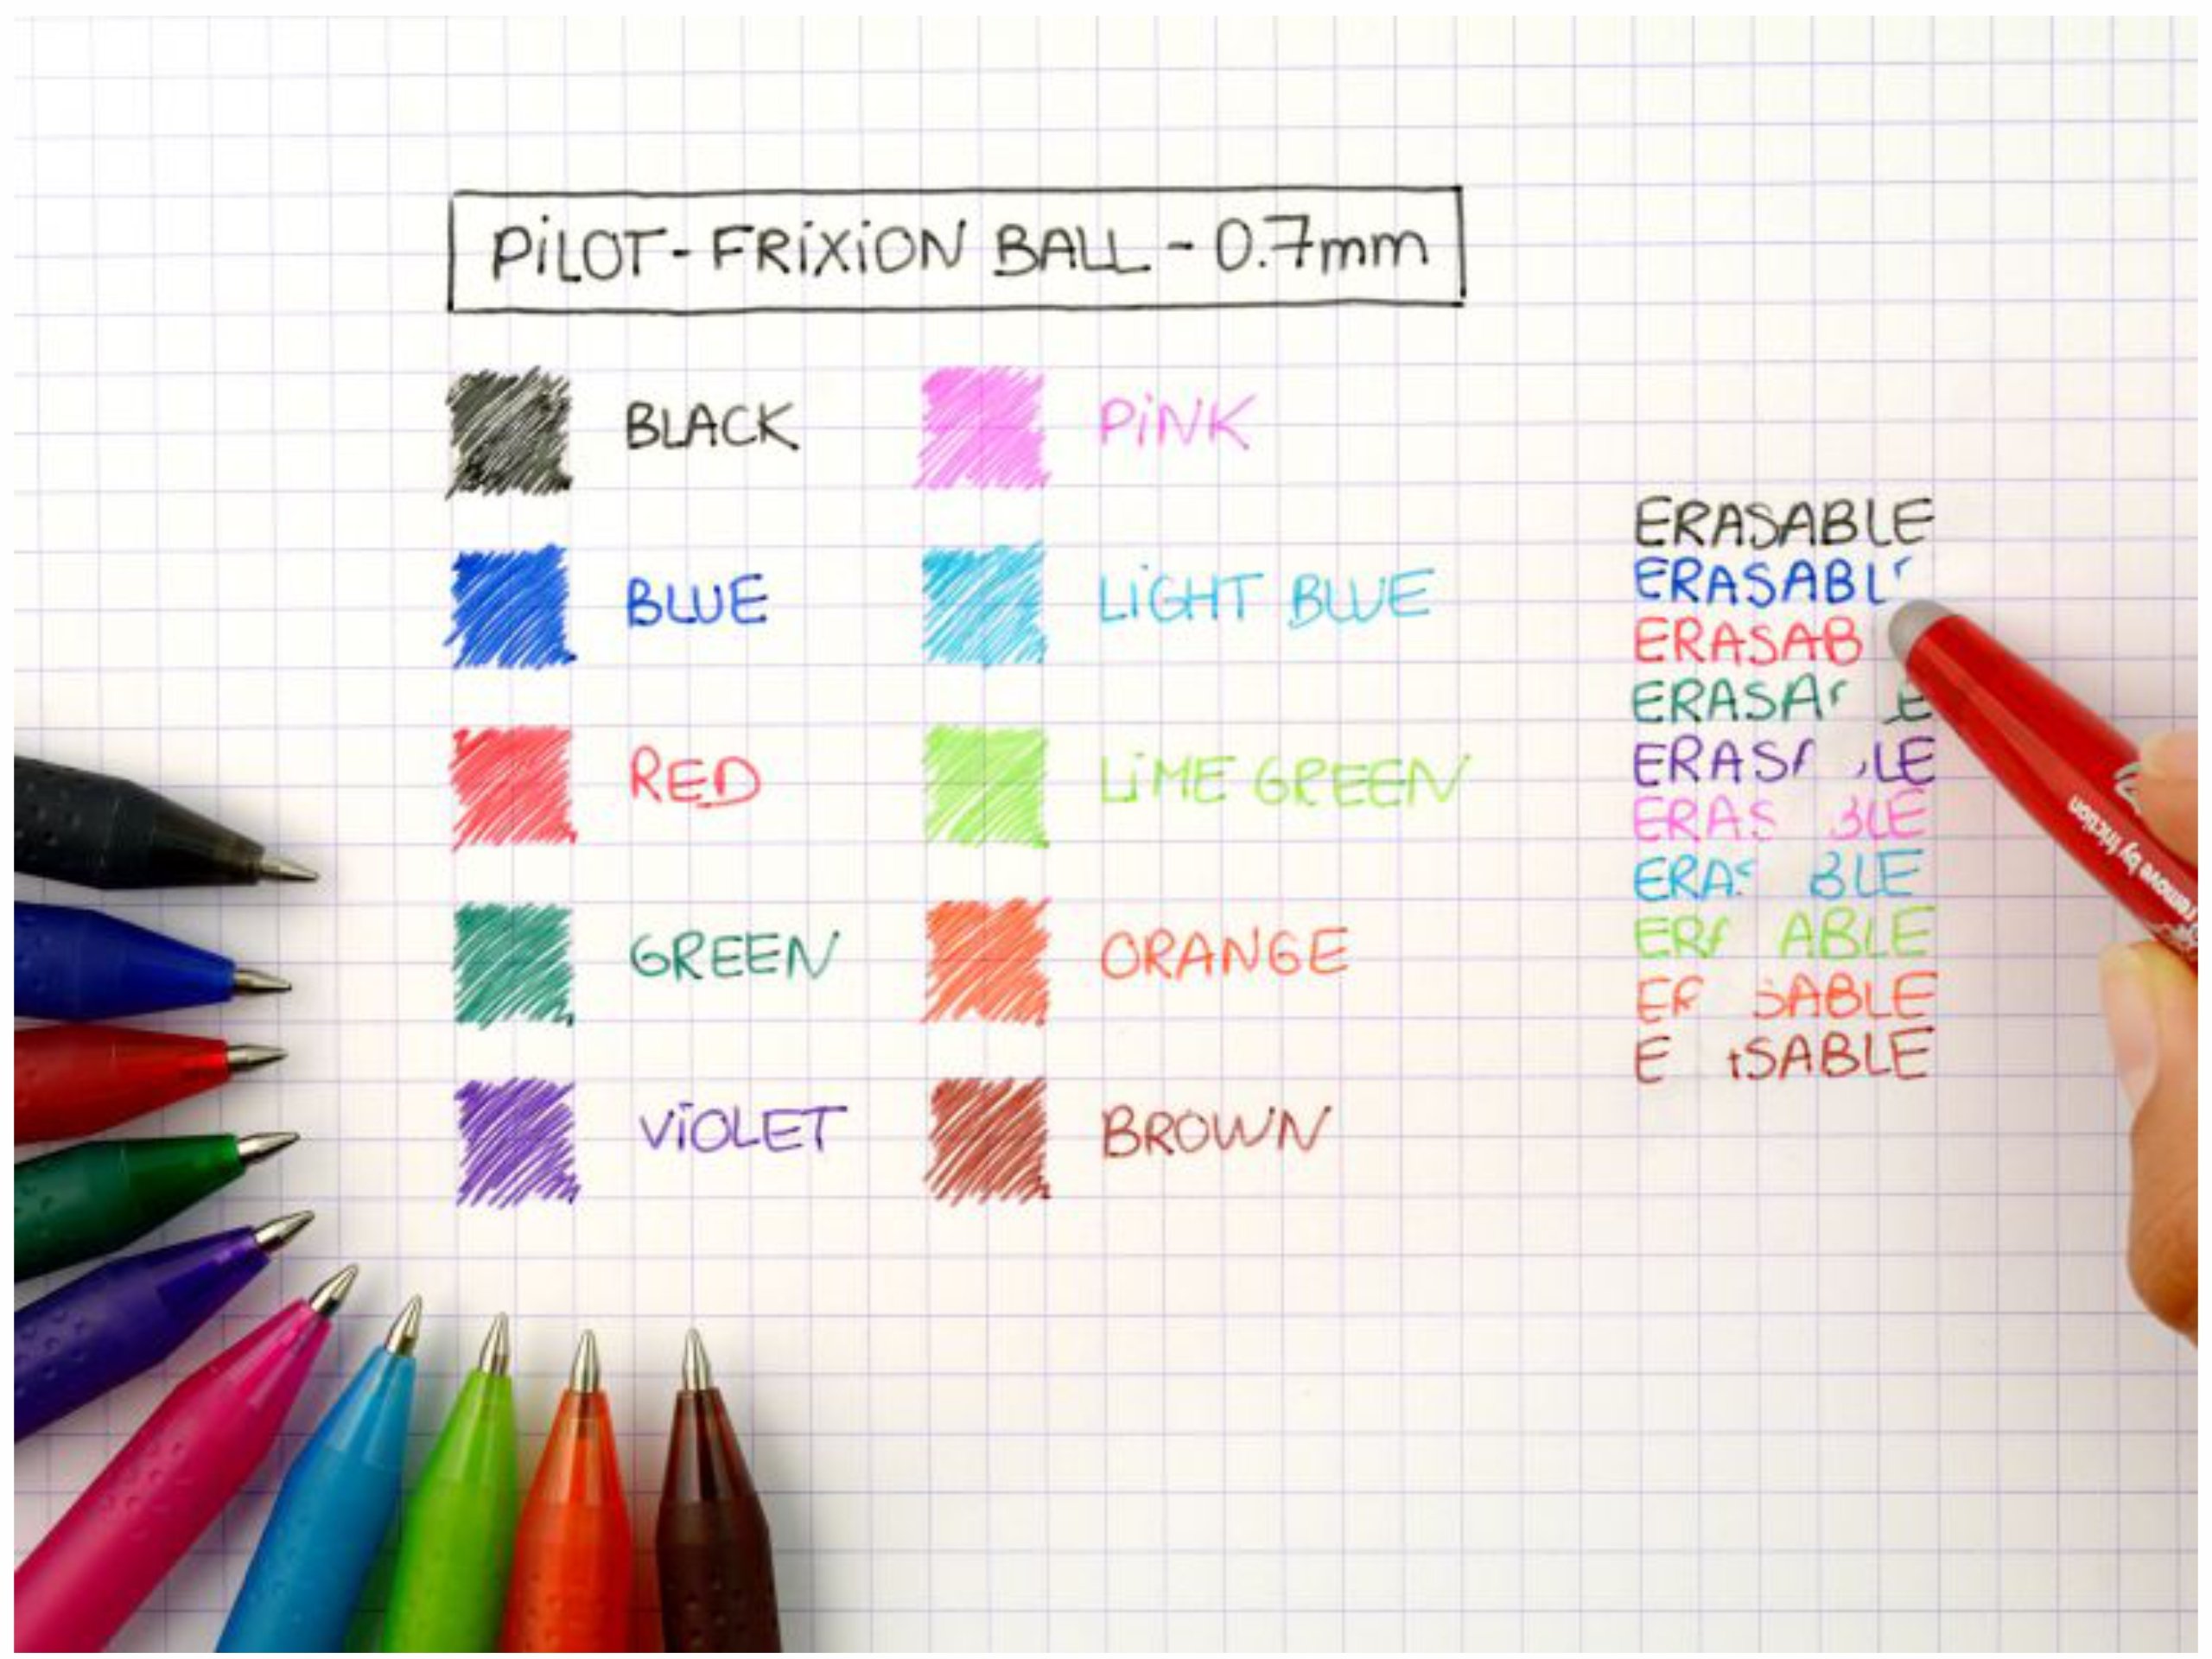 PiLOT - FRiXiON BALL - 0.7mm
BLACK
PiNK
BLUE
LiGHT BLUE
RED
LiME GREEN
GREEN
ORANGE
ViOLET
BROWN
ERASABLE
ERASABL
ERASAB
ERASA E
ERAS LE
ERAS BLE
ERAS BLE
ERA ABLE
ER SABLE
E SABLE
remove by friction